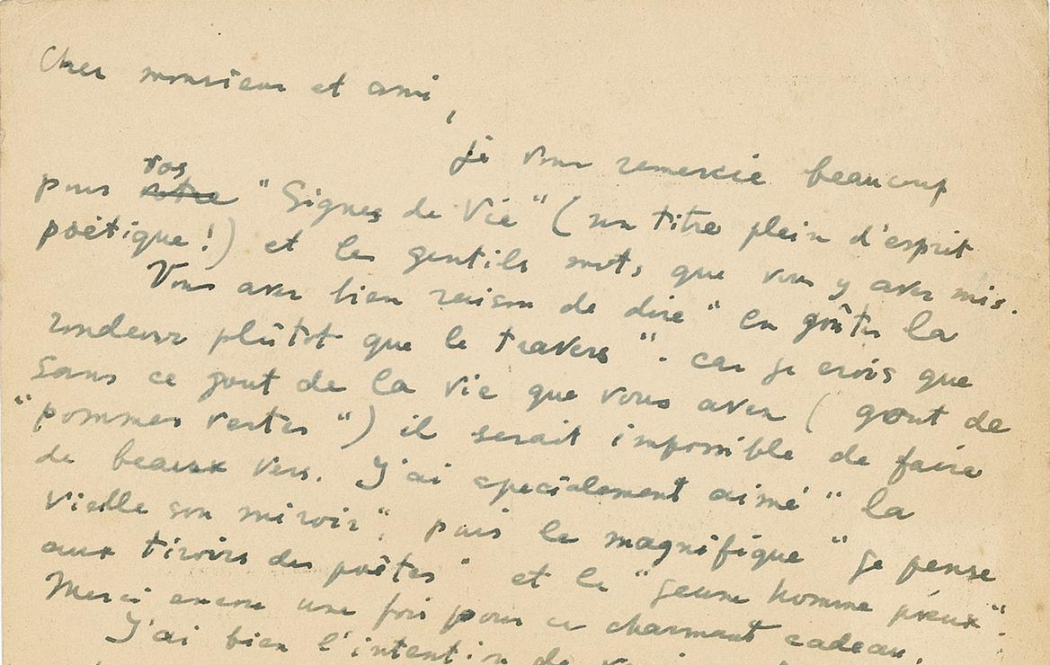 Cher monsieur et ami,
je vous remercie beaucoup
pour vos votre "Signes de Vie" (un titre plein d'esprit
poëtique!) et les gentils mots, que vous y avez mis.
Vous avez bien raison de dire "en goûter la
rondeur plûtot que le travers". car je crois que
sans ce gout de la vie que vous avez (gout de
"pommes vertes") il serait impossible de faire
de beaux vers. J'ai specialement aimé "la
vieille son miroir", puis le magnifique "je pense
aux tiroirs des poêtes" et le "jeune homme pieux".
Merci encore une fois pour ce charmant cadeau.
J'ai bien l'intention de